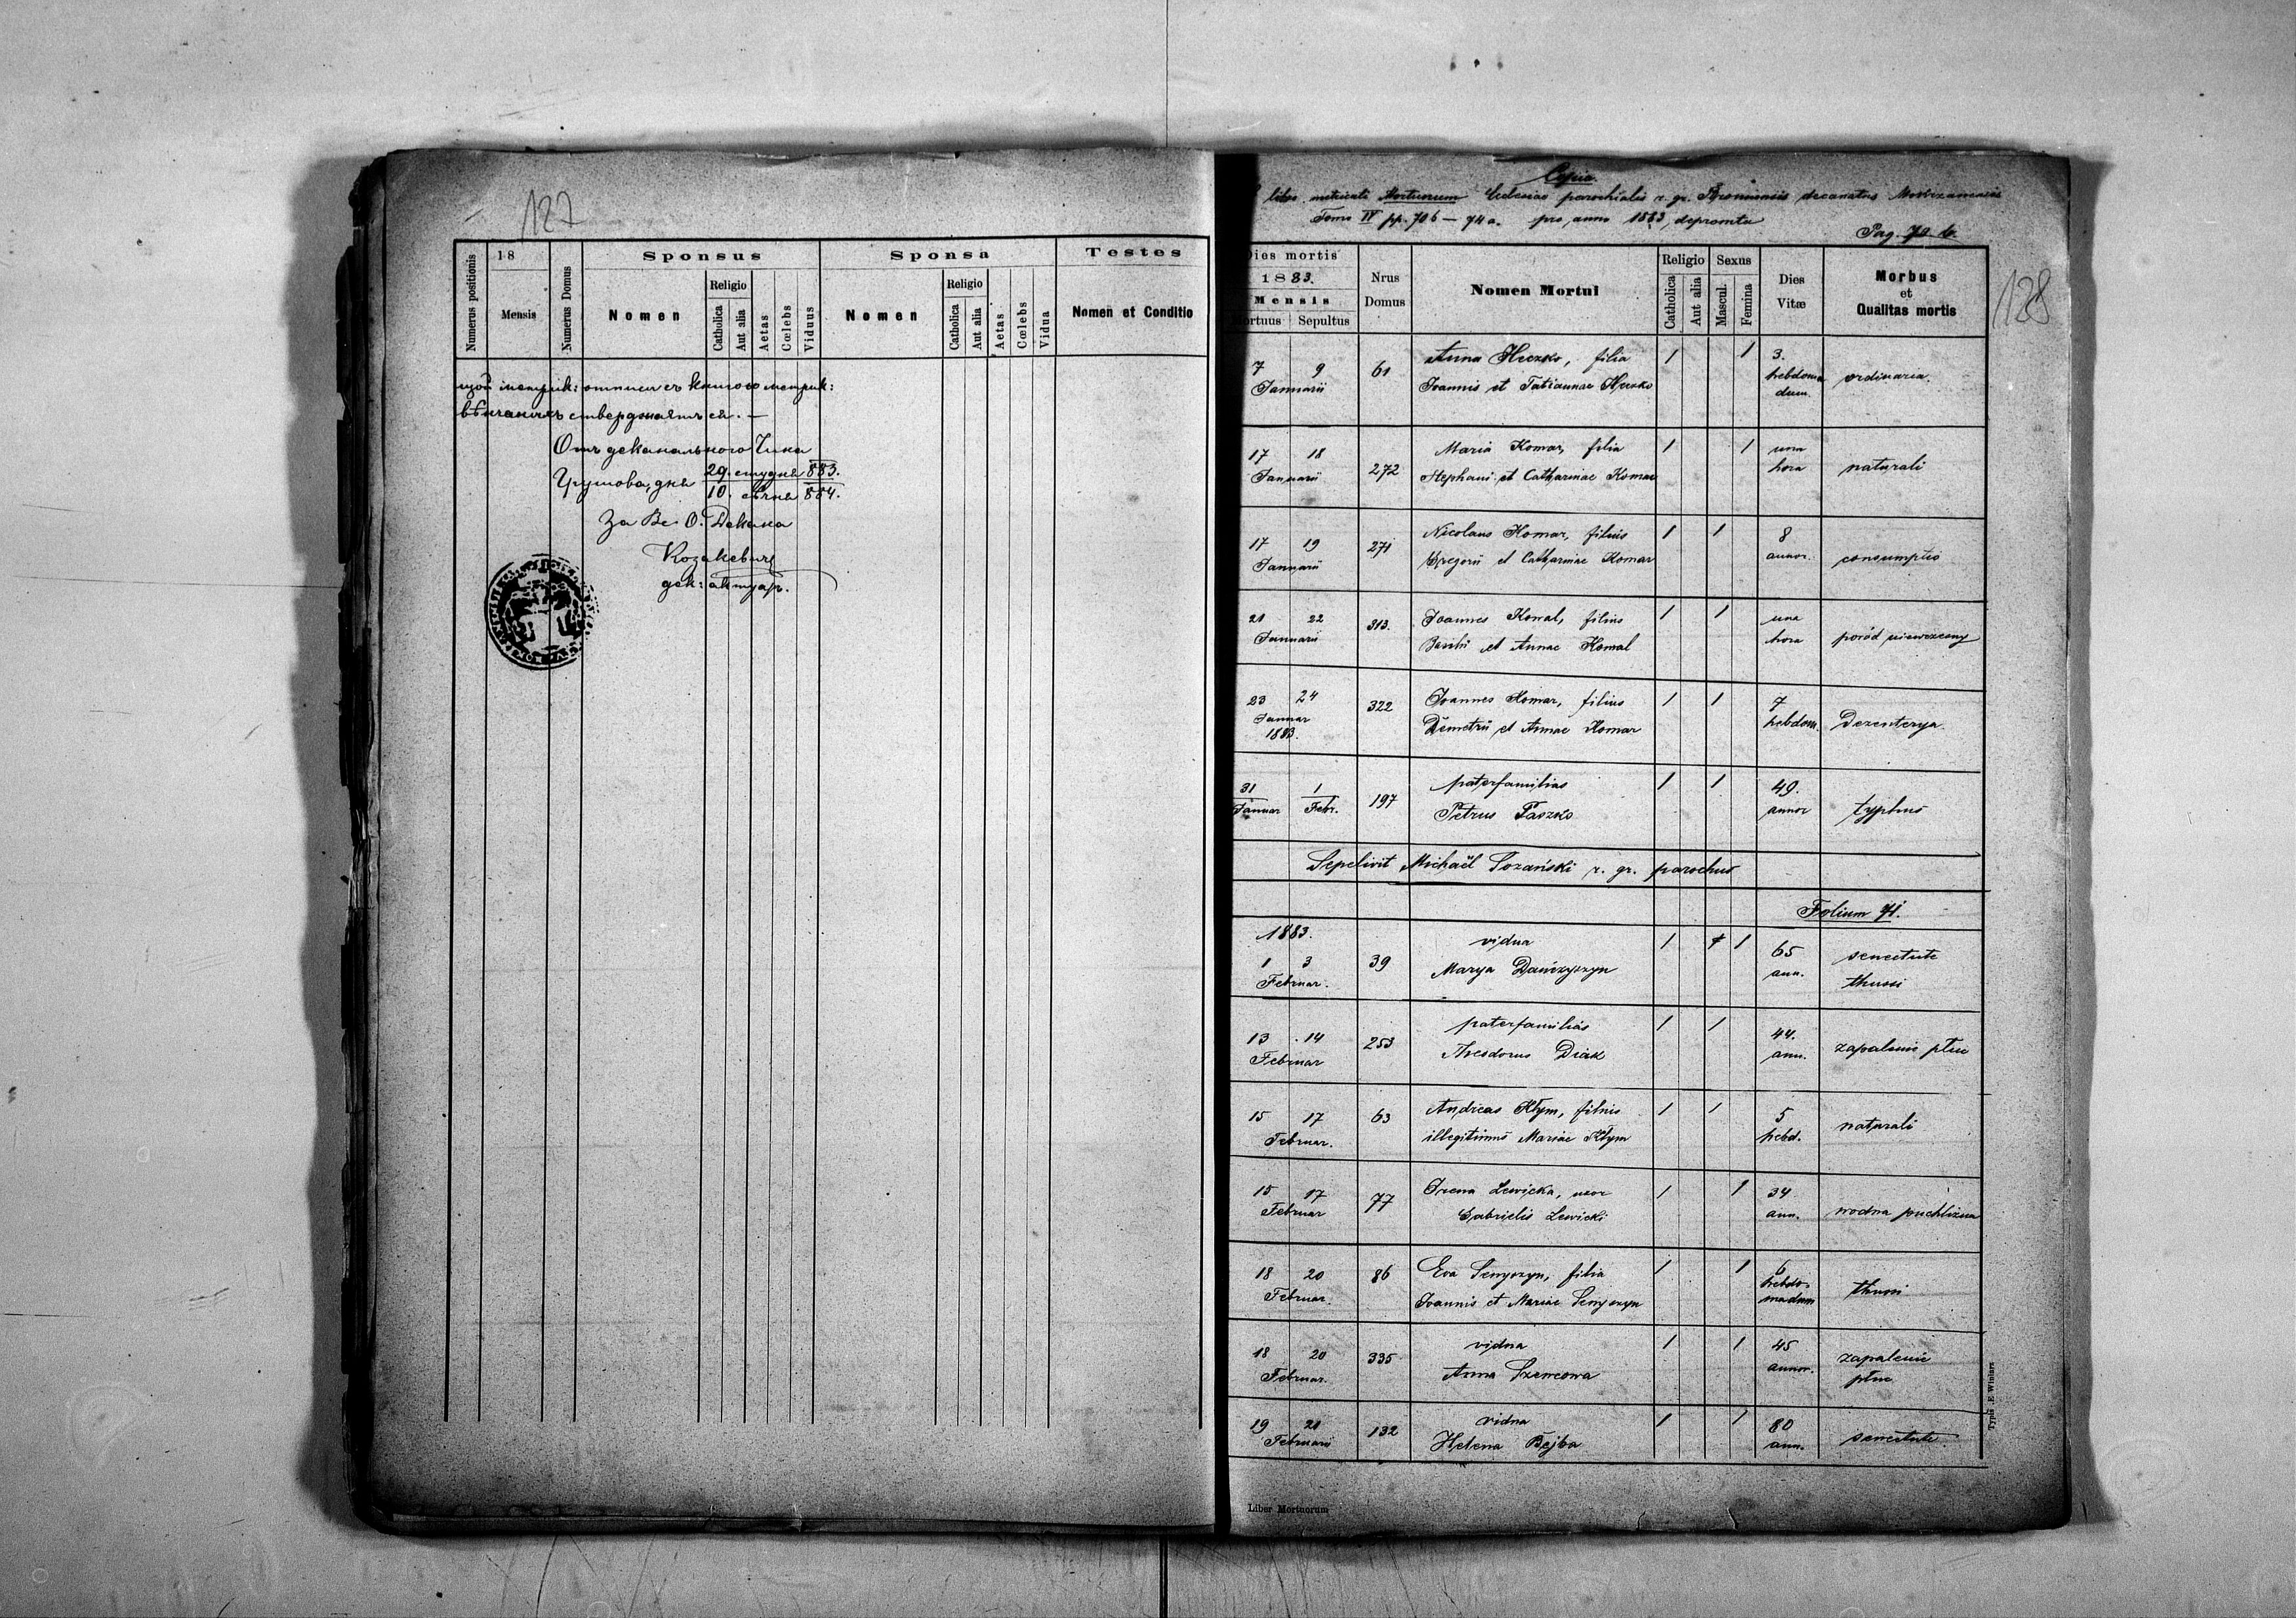 127
Numerus positionis
18
Mensis
Numerus Domus
Sponsus
Nomen
Religio
Catholica
Aut alia
Aetas
Cœlebs
Viduus
Sponsa
Nomen
Religio
Catholica
Aut alia
Aetas
Cœlebs
Vidua
Testes
Nomen et Conditio
метрик: отписи съ книгою метрик:
вѣнчаныхъ стверджаятъ ся. —
Отъ деканального Чина
Грушова, дня 29. студня 883.
10. сѣчня 884.
За Вс. О. Декана
Козакевич
дек: актуар.
Copia
libri metricati Mortuorum Ecclesiae parochialis r. gr. decanatus
Tomo IV pp. 70b — 74a. pro anno 1883 depromta
Pag. 70 b.
128
Dies mortis
1883.
Mensis
Mortuus Sepultus
Nrus Domus
Nomen Mortui
Religio
Catholica
Aut alia
Sexus
Mascul.
Femina
Dies Vitæ
Morbus
et
Qualitas mortis
7 9 61 Anna Huzko, filia 1 1 3.
Januarii Joannis et Tatiannae Huzko hebdoma dum. ordinaria.
17 18 272 Maria Komar, filia 1 1 una
Januarii Stephani et Catharinae Komar hora naturali
17 19 271 Nicolaus Komar, filius 1 1 8
Januarii Gregorii et Catharinae Komar annor. consumptio
21 22 313. Joannes Kowal, filius 1 1 una
Januarii Basilii et Annae Kowal hora poród niewczesny
23 24 322 Joannes Komar, filius 1 1 7
Januar Demetrii et Annae Komar hebdom. Dezenterya
1883.
31 1 197 paterfamilias 1 1 49.
Januar Febr. Petrus Paszko annor typhus
Sepelivit Michaël Sozański r. gr. parochus
Folium 71.
1883.
1 3 39 vidua 1 1 65 senectute
Februar. Marya Dańczyszyn ann. thussi
13 14 253 paterfamilias 1 1 44.
Februar Theodorus Diak ann. zapalenie płuc
15 17 63 Andreas Kłym, filius 1 1 5
Februar. illegitimus Mariae Kłym hebd. naturali
15 17 77 Irena Lewicka, uxor 1 1 34
Februar Gabrielis Lewicki ann. wodna puchlizna
18 20 86 Eva Senyszyn, filia 1 1 6
Februar. Joannis et Mariae Senyszyn hebdo- madum thussi
18 20 335 vidua 1 1 45 zapalenie
Februar. Anna Szewcowa annor. płuc
19 21 132 vidua 1 1 80
Februarii Helena Bejba ann. senectute.
Typis E. Winiarz
Liber Mortuorum